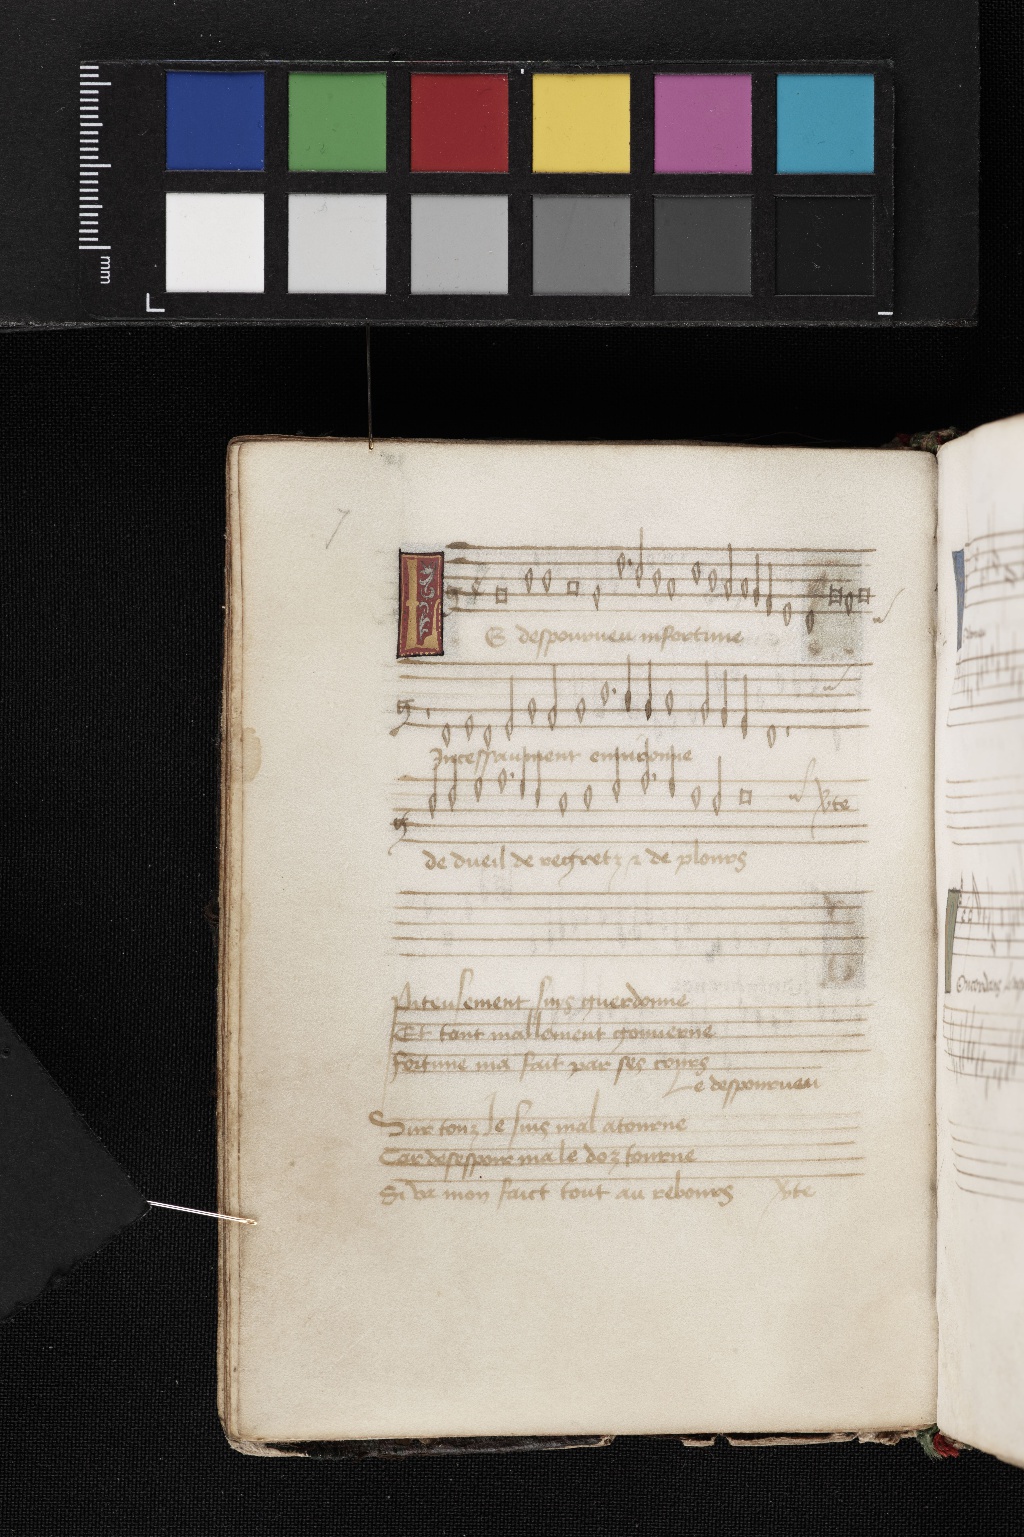 mm
7
Le despourueu infortune
Incessaument enuironne
de dueil de regretz & de plours
vte
Piteusement suis guerdonne
Et tant mallement gouuerne
fortune ma fait par ses cours
Le despourueu
Sur touz Je suis mal atourne
Car desespoir ma le doz tourne
Si va mon faict tout au rebours vte